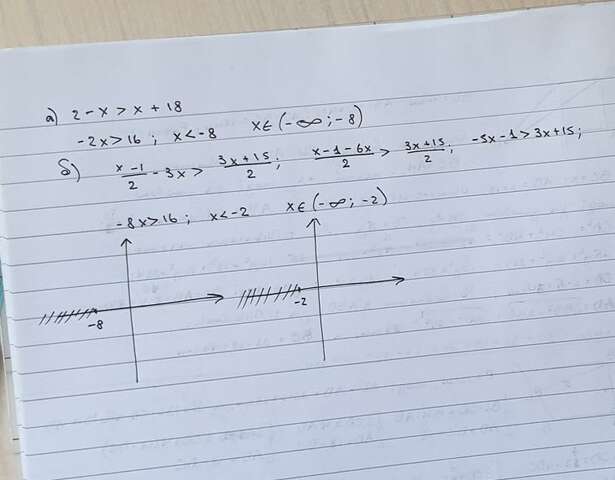 а) 2 - x > x + 18
-2x > 16 ; x < -8 x ∈ (-∞ ; -8)
б) \frac{x-1}{2} - 3x > \frac{3x+15}{2} ; \frac{x-1-6x}{2} > \frac{3x+15}{2} ; -5x-1 > 3x+15 ;
-8x > 16 ; x < -2 x ∈ (-∞ ; -2)
-8 -2